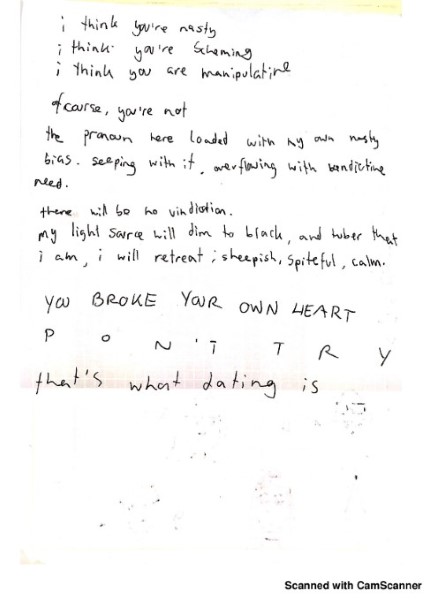 i think you're nasty
i think you're scheming
i think you are manipulative
ofcourse, you're not
the pronoun here loaded with my own nasty
bias. seeping with it, overflowing with
need.
there will be no vindication.
my light source will dim to black, and tuber that
i am, i will retreat; sheepish, spiteful, calm.
YOU BROKE YOUR OWN HEART
DON'T TRY
that's what dating is
Scanned with CamScanner